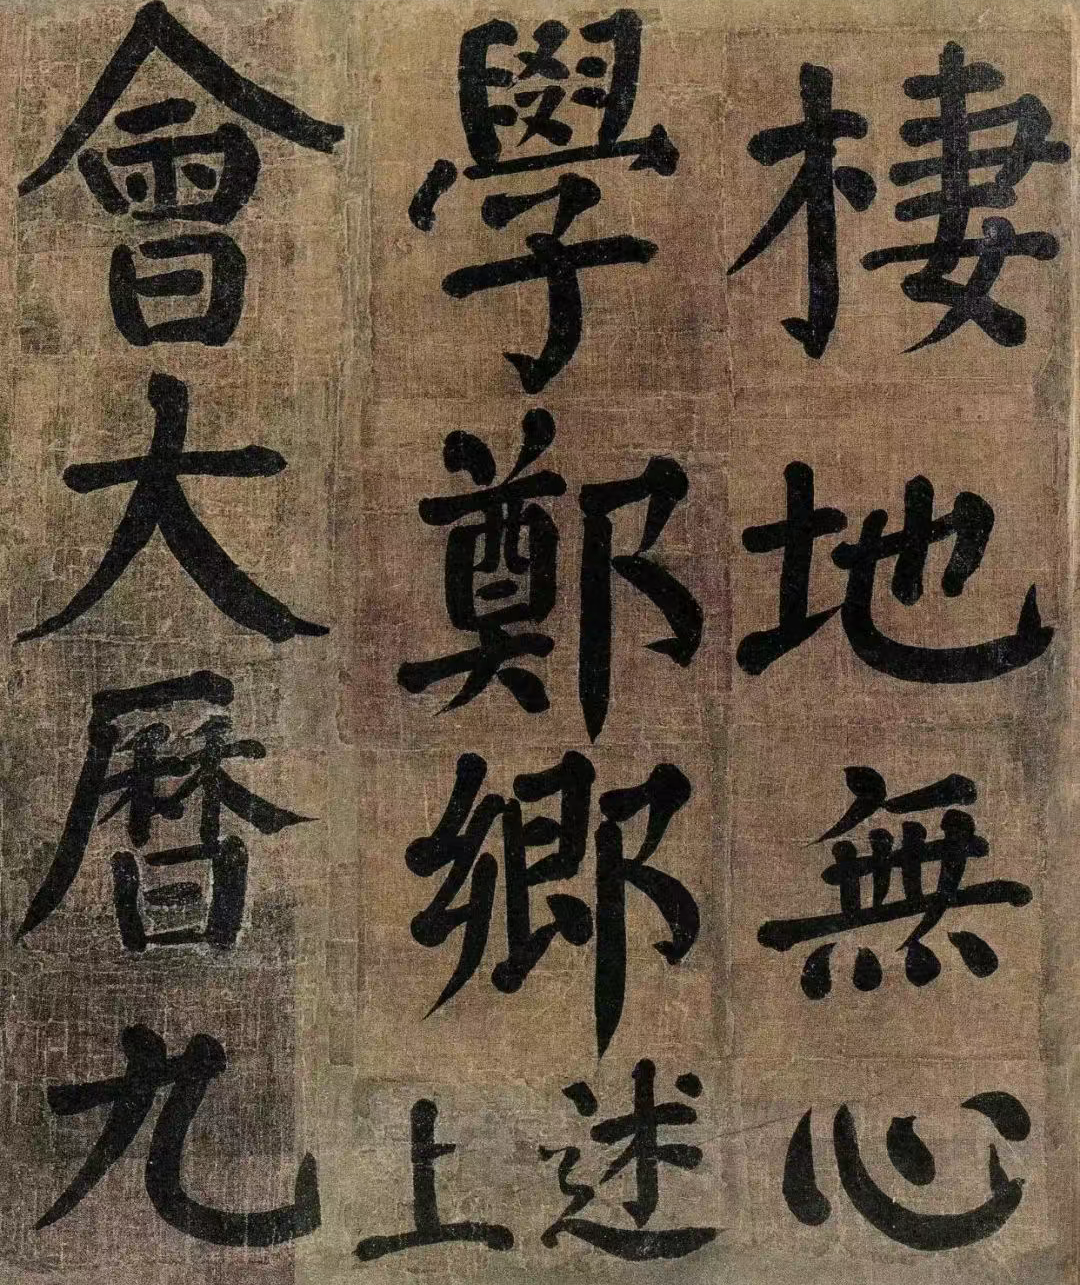 棲地無心
學鄭鄉述上
會大曆九